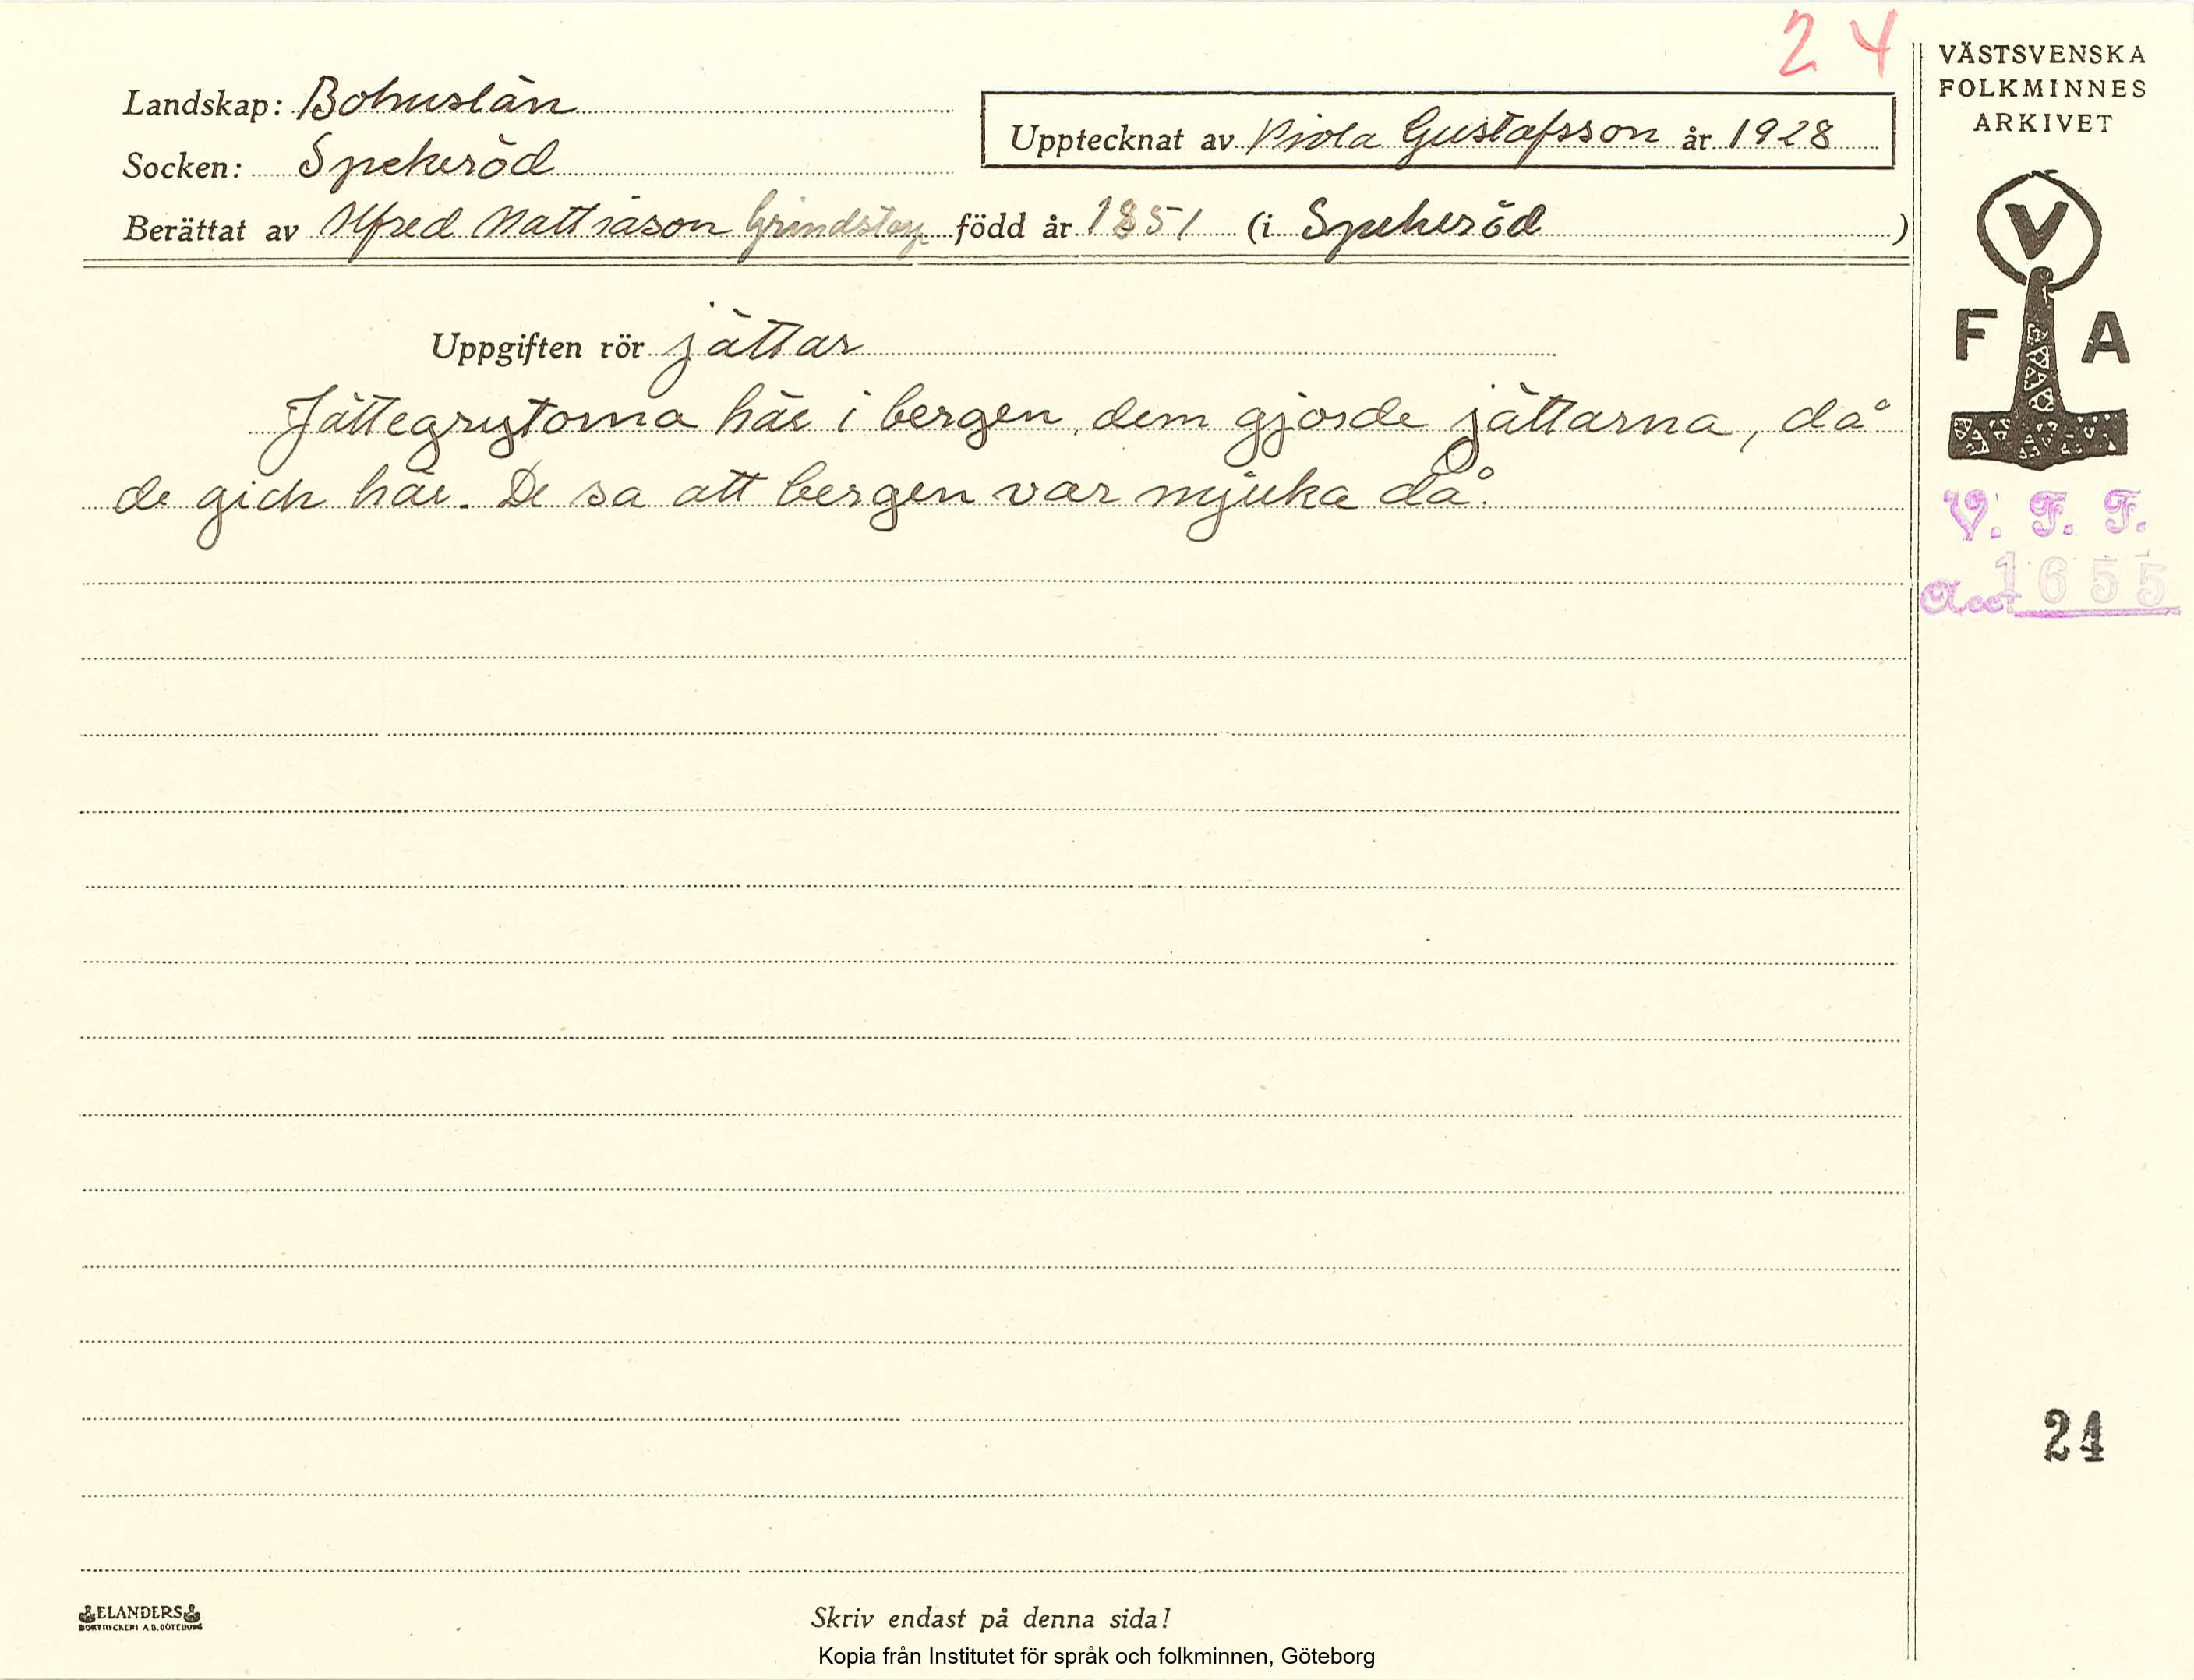 24
VÄSTSVENSKA
FOLKMINNES
ARKIVET
Landskap: Bohuslän
Upptecknat av Viola Gustafsson år 1928
Socken: Spekeröd
Berättat av Alfred Mattiason Grindstorp född år 1851 (i Spekeröd)
V
F A
Uppgiften rör jättar
Jättegrytorna här i bergen, dem gjorde jättarna, då
de gick här. De sa att bergen var mjuka då.
V. F. F.
Acc. 1655
24
ELANDERS
BOKTRYCKERI A.B. GÖTEBORG
Skriv endast på denna sida!
Kopia från Institutet för språk och folkminnen, Göteborg